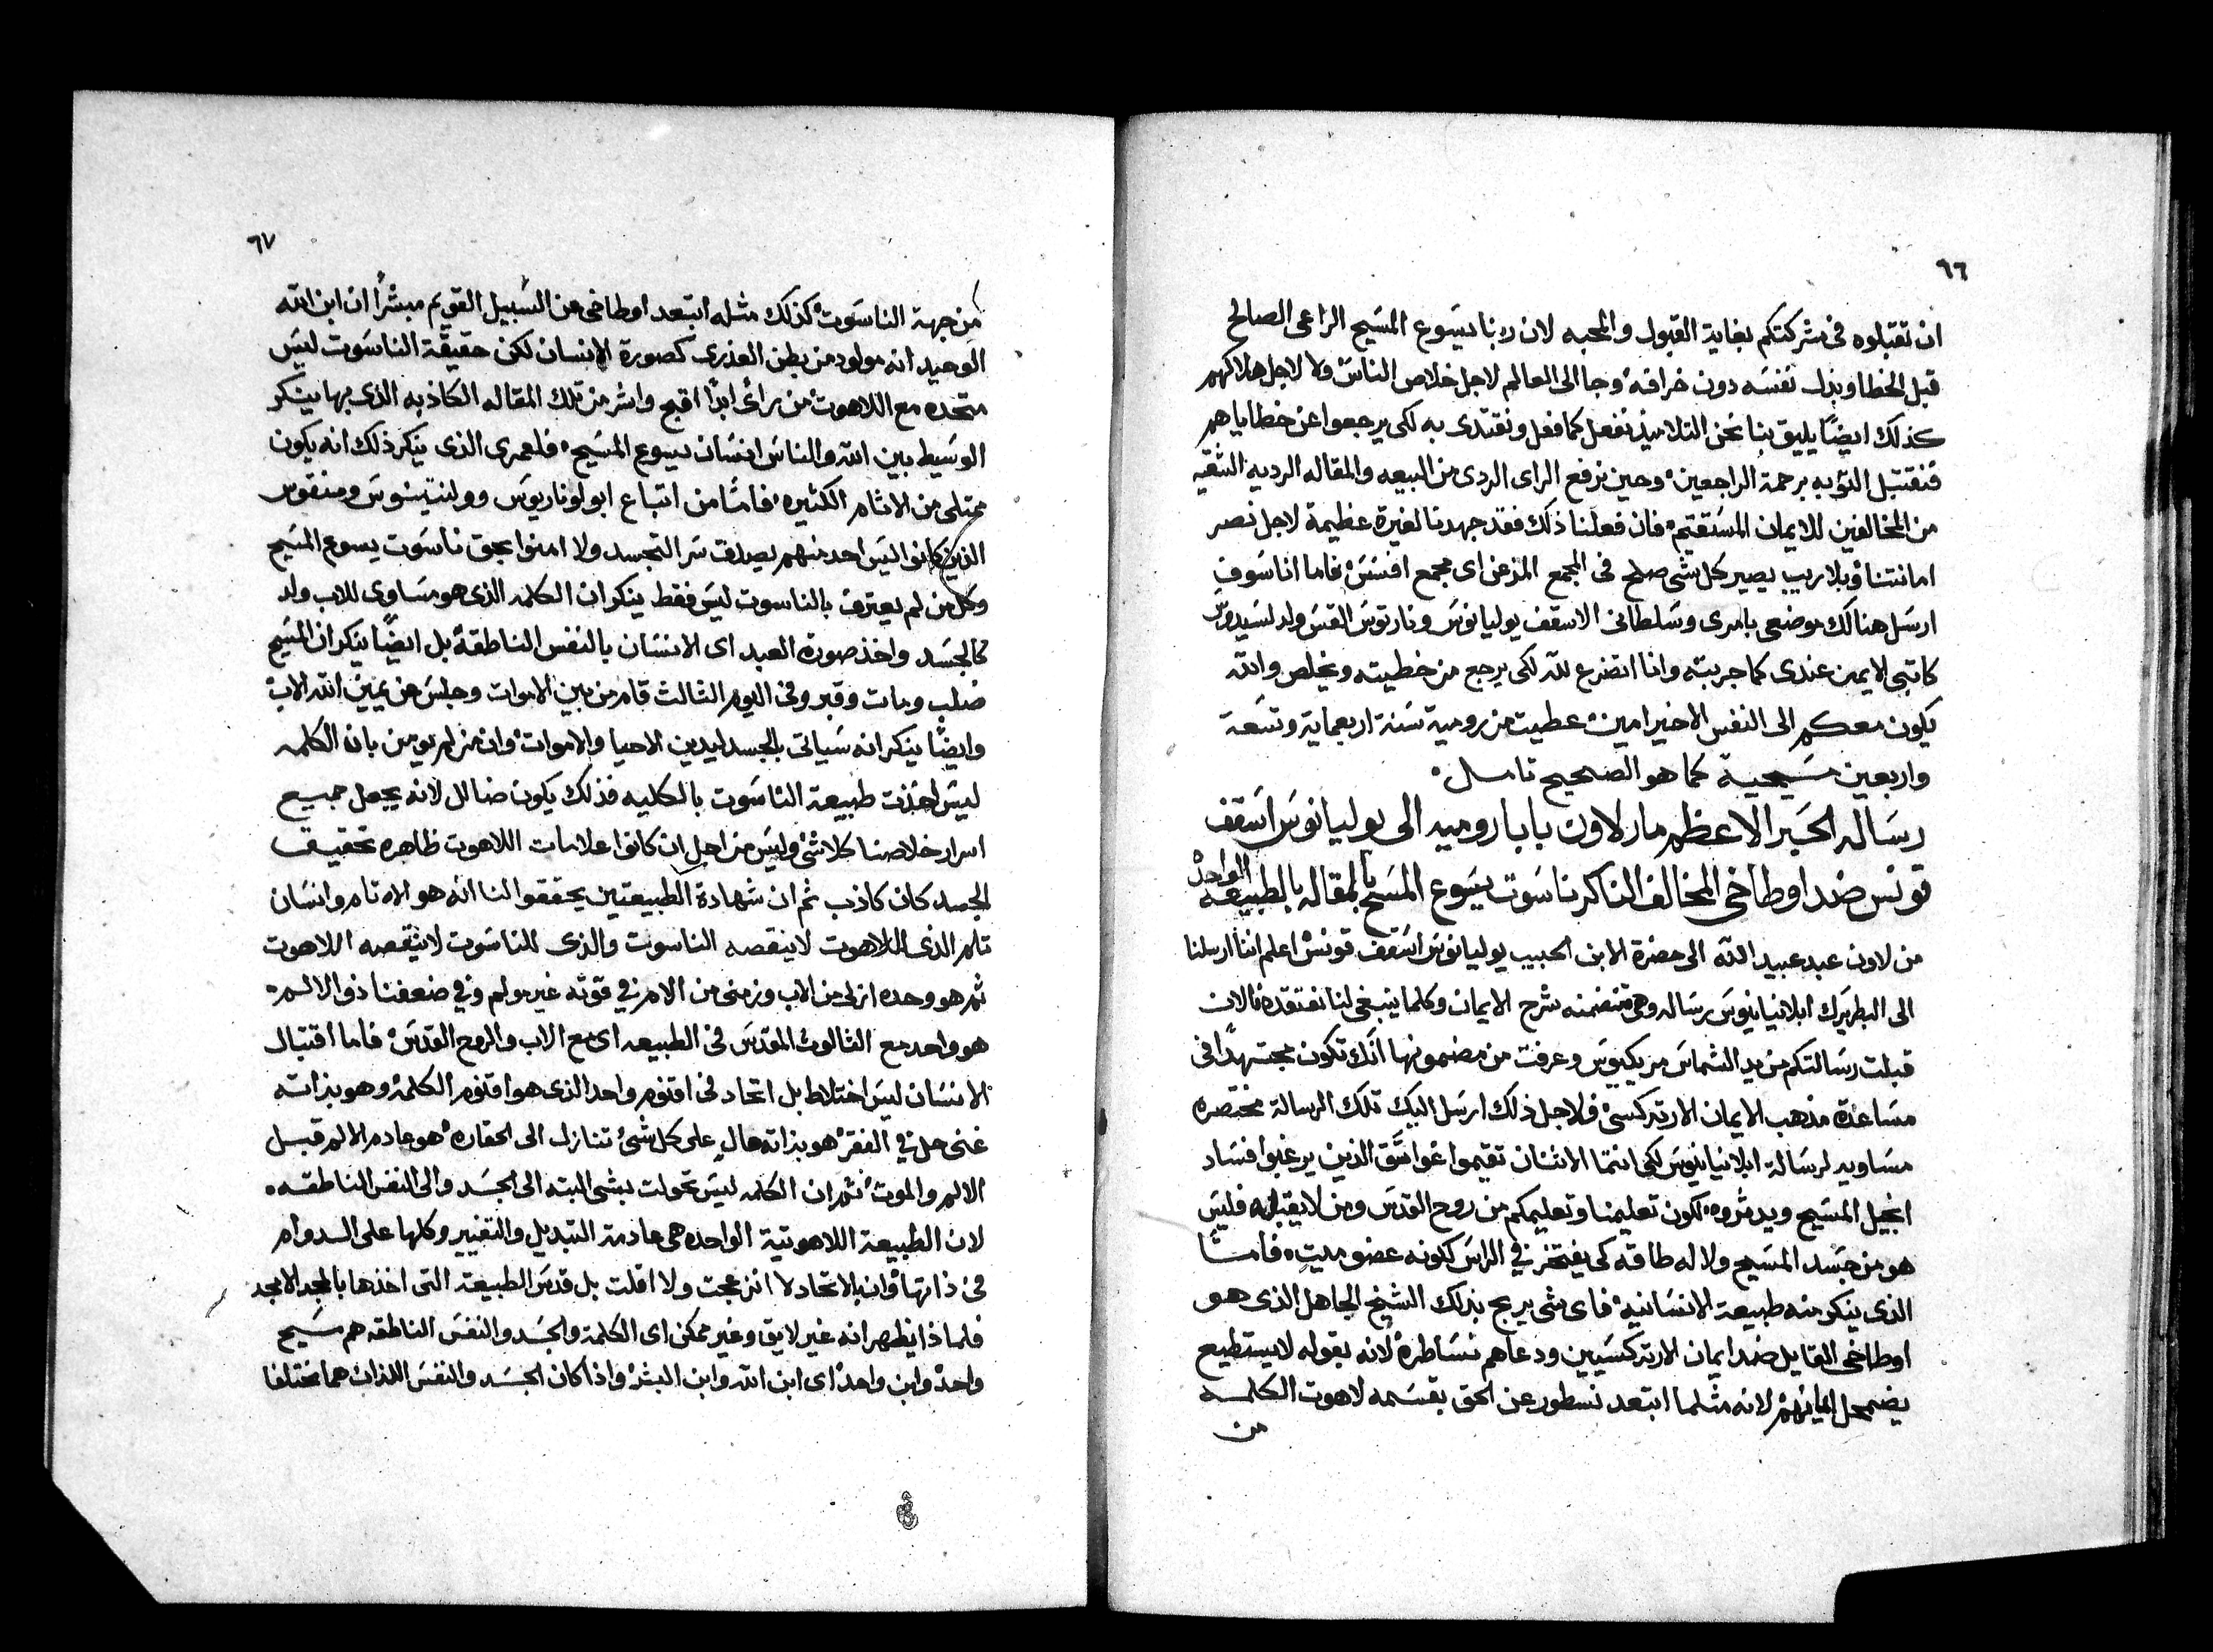 ٦٦
ان تقبلوه فى شركتكم بغاية القبول والمحبه لان ربنا يسَوع المسَيح الراعى الصالح
قبل الخطا وبدل نفسَه دون خرافهْ وجا الى العالم لاجل خلاص الناسْ ولا لاجل هلاكهم
كذلك ايضًا يليق بنا نحن التلاميذ نفعل كما فعل ونقتدى به لكى يرجعوا عن خطاياهم
فنقتبل التوبه برحمة الراجعينْ وحين نرفع الراى الردى من البيعه والمقاله الرديه الشقيه
من المخالفين للايمان المسَتقيمْ فان فعلنا ذلك فقد جهدنا لغيرة عظيمة لاجل نصر
امانتنا وبلاريب يصير كل شى صلح فى المجمع المزعن اى مجمع افسُسْ فاما انا سَوف
ارسَل هنالك موضعى بامرى وسَلطانى الاسقف يوليانوسَ ونارتوسَ القسَ ولد لسَيدوسَ
كاتبى الايمن عندى كما جربته وانا اتضرع لله لكى يرجع من خطيته ويخلص والله
يكون معكم الى النفس الاخير امينْ عطيت من رومية سَنة اربعماية وتسَعة
واربعين مسَيحية كما هو الصحيح تامل
رسَاله الحَبر الاعظم مار لاون بابا روميه الى يوليانوسَ اسَقف
قونس ضد اوطاخى المخالف الناكر ناسَوت يسَوع المسَيح بالمقاله بالطبيعه الواحدْ
من لاون عبد عبيد الله الى حضرة الابن الحبيب يوليانوسَ اسَقف قونسْ اعلم اننا ارسلنا
الى البطريرك ابلانيانيوسَ رسَاله وهى متضمنه شرح الايمان وكلما ينبغى لنا نعتقده فالان
قبلت رسَالتكم من يد الشماسَ مريكيوسَ وعرفت من مضمونها انَك تكون مجتهدًا فى
مسَاعدة مذهب الايمان الارتدكسىْ فلاجل ذلك ارسَل اليك تلك الرسالة مختصره
مسَاويه لرسَالة ابلانيانيوسَ لكى انتما الاثنان تقيموا عوامَّق الذين يرغبوا فسَاد
انجيل المسَيح ويدثروه لكون تعليمنا وتعليمكم من روح القدسَ ومن لا يقبله فليسَ
هو من جسَد المسَيح ولا له طاقه كى يفتخر فى الراسَ لكونه عضو ميتٍ فامسَا
الذى ينكر منه طبيعة الانسَانيهْ فاى شى يربح بذلك الشيخ الجاهل الذى هو
اوطاخى القايل ضد ايمان الارتدكسَيين ودعاهم نسَاطرهْ لانه بقوله لا يستطيع
يضمحل ايمانهمْ لانه مثلما ابتعد نسطور عن الحق بقسَمه لاهوت الكلمه
من
٦٧
من جهة الناسَوتْ كذلك مثله ابتعد اوطاخى من السَبيل القويم مبشرًا ان ابن الله
الوحيد انه مولود من بطن العذرى كصورة الانسان لكن حقيقة الناسَوت ليسَ
متحده مع اللاهوت من براىْ ابدًا اقبح واشر من تلك المقاله الكاذبه الذى بها ينكر
الوسَيط بين الله والناسَ انسَان يسوع المسَيحْ فلعمرى الذى ينكر ذلك انه يكون
ممتلى من الاثام الكثيرهْ فامسًا من اتباع ابولوناريوسَ وولنتينوسَ ومنقوس
الذين كانوا ليسَ احد منهم يصدق سَر التجسد ولا امنوا بحق ناسَوت يسوع المسَيح
وكل من لم يعترف بالناسوت ليسَ فقط ينكر ان الكلمه الذى هو مسَاوى للاب ولد
كالجسَد واخذ صورة العبد اى الانسَان بالنفس الناطقهْ بل ايضًا ينكر ان المسَيح
صُلب ومات وقبر وفى اليوم الثالث قام من بين الاموات وجلسَ عن يمين الله الابْ
وايضًا ينكر انه سَياتى بالجسد ليدين الاحيا والامواتْ وان من لم يومن بان الكلمه
ليسَ اخذت طبيعة الناسَوت بالكليه فذلك يكون ضالل لانه يجعل جميع
اسرار خلاصنا كلاشىْ وليسَ من اجل ان كانوا علامات اللاهوت ظاهره تحقيق
الجسد كان كاذب ثم ان شهادة الطبيعتين يحققوا لنا انه هو الاه تام وانسَان
تام الذى اللاهوت لا ينقصه الناسوت والذى للناسَوت لا ينقصه اللاهوت
ثم هو وحده ازلى من الاب وزمنى من الام فى قوته غير مولم وفى ضعفنا ذو الالم
هو واحد مع الثالوث المقدسَ فى الطبيعه اى مع الاب والروح القدسَ فاما اقتبال
الانسَان ليسَ اختلاط بل اتحاد فى اقنوم واحد الذى هو اقنوم الكلمهْ وهو بذاته
غنى حل فى الفقرْ هو بذاته عالٍ على كل شىْ تنازل الى الحقارهْ هو عادم الالم قبل
الالم والموتْ ثم ان الكلمه ليسَ تحولت بشى البته الى الجسَد والى النفس الناطقه
لان الطبيعة اللاهوتية الواحده هى عادمة التبديل والتغيير وكلها على السدوام
فى ذاتهاْ وان بالاتحاد لا انزعجت ولا اقلت بل قدسَ الطبيعة التى اخذها بالمجد الامجد
فلماذا يظهر انه غير لايق وغير ممكن اى الكلمة والجسَد والنفسَ الناطقه هم مسَيح
واحدْ وابن واحدْ اى ابن الله وابن البشرْ واذا كان الجسَد والنفسَ اللذان هما مختلفا